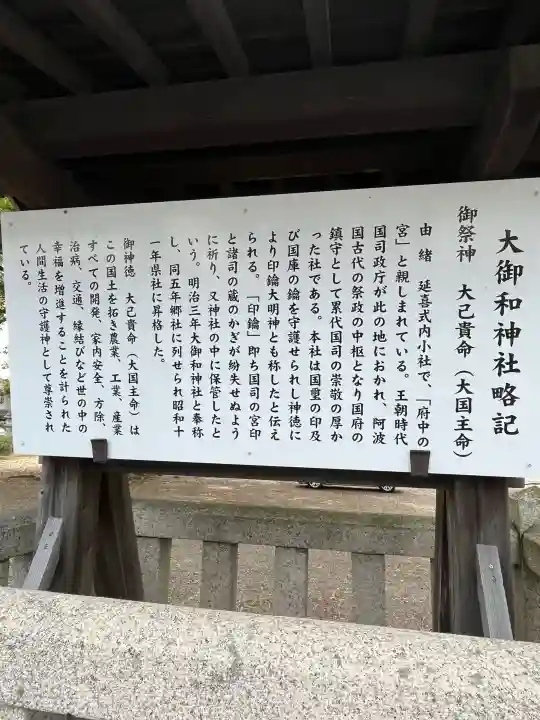 大御和神社略記
御祭神 大己貴命（大国主命）
由緒 延喜式内小社で、「府中の
宮」と親しまれている。王朝時代
国司政庁が此の地におかれ、阿波
国古代の祭政の中枢となり国府の
鎮守として累代国司の崇敬の厚か
った社である。本社は国璽の印及
び国庫の鑰を守護せられし神徳に
より印鑰大明神とも称したと伝え
られる。「印鑰」即ち国司の宮印
と諸司の蔵のかぎが紛失せぬよう
に祈り、又神社の中に保管したと
いう。明治三年大御和神社と奉称
し、同五年郷社に列せられ昭和十
一年県社に昇格した。
御神徳 大己貴命（大国主命）は
この国土を拓き農業、工業、産業
すべての開発、家内安全、方除、
治病、交通、縁結びなど世の中の
幸福を増進することを計られた
人間生活の守護神として尊崇され
ている。